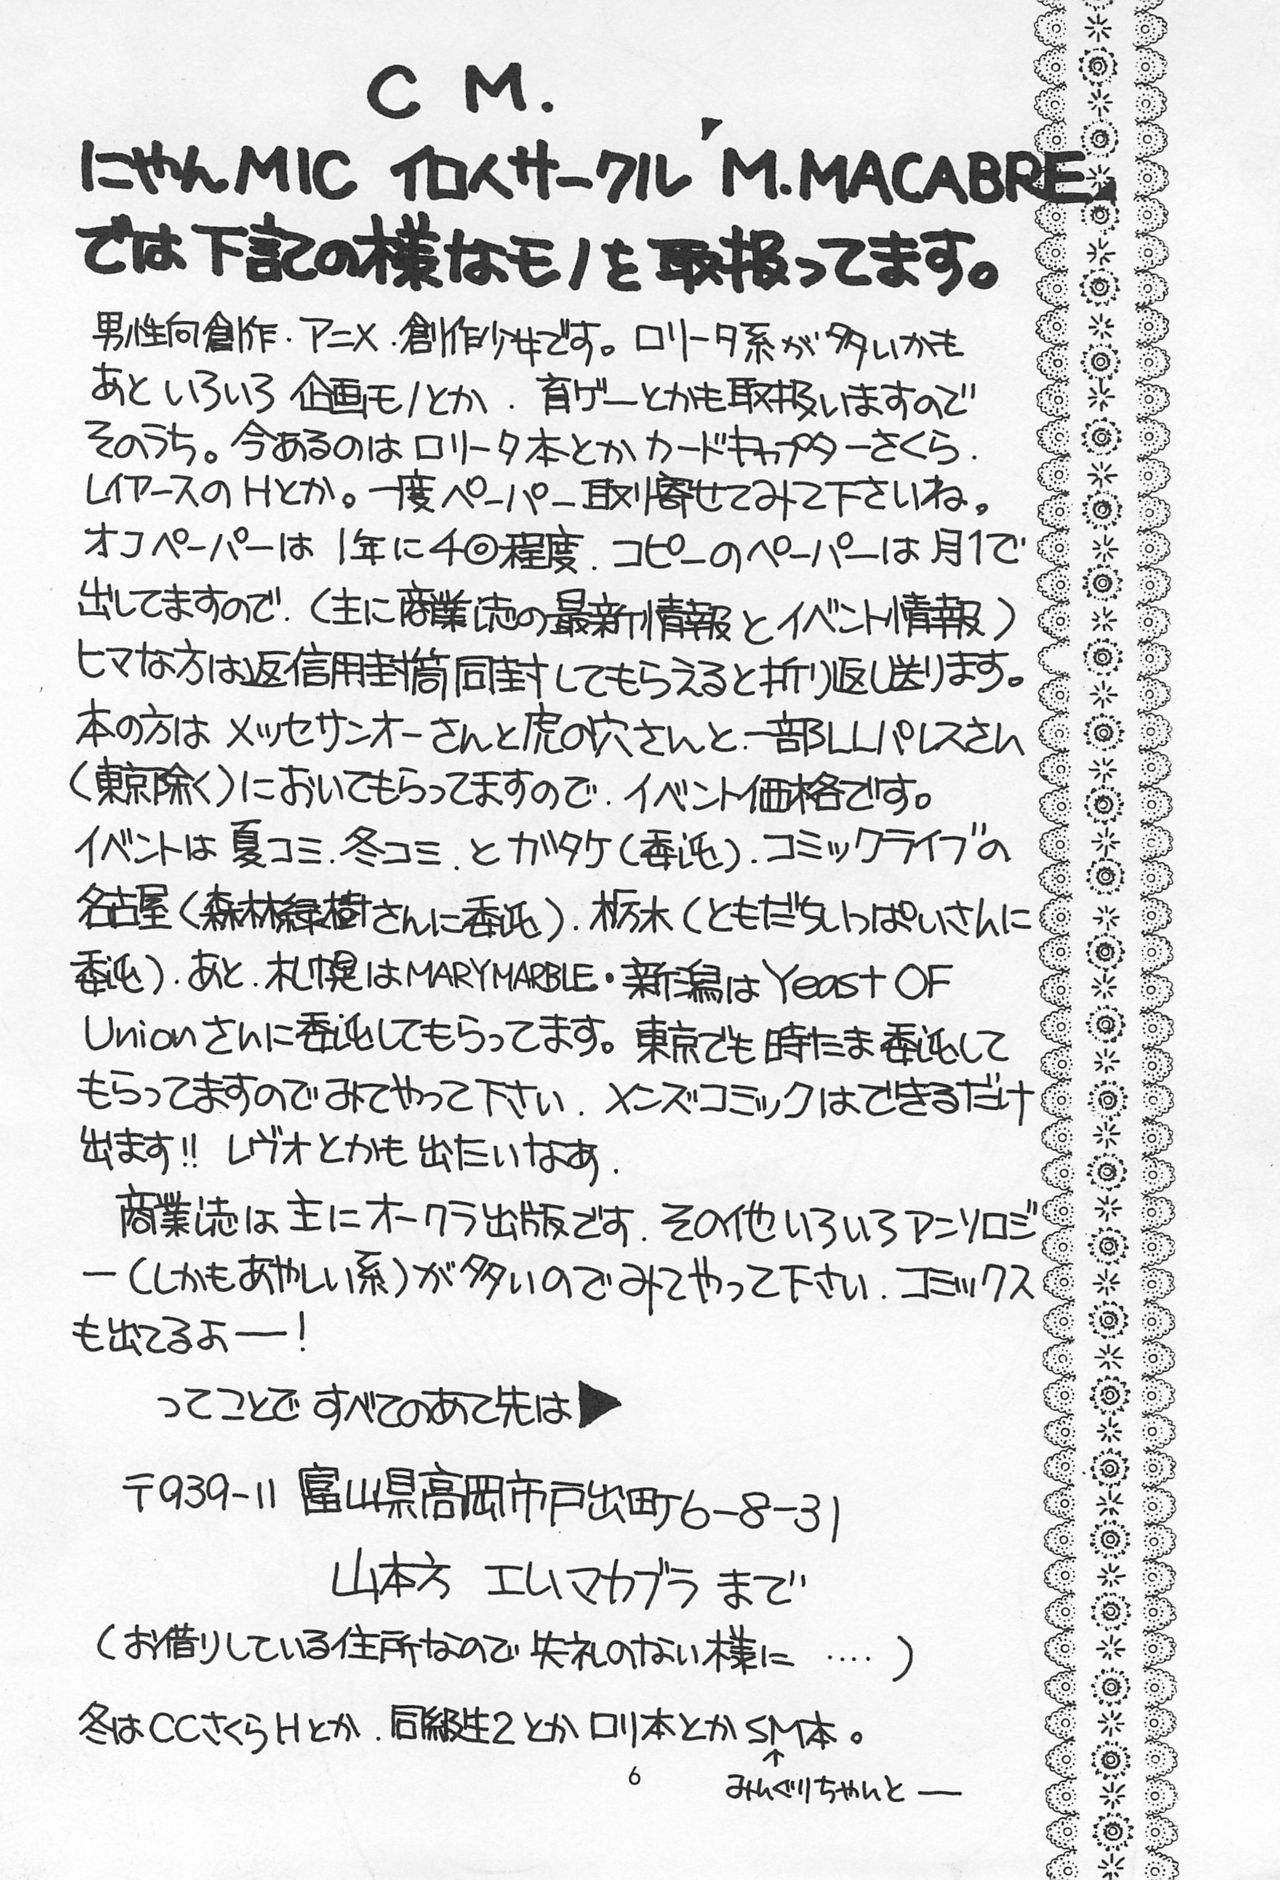 CM.
にゃんMIC 個人サークル「M.MACABRE」
では下記の様なモノを取扱ってます。
男性向創作・アニメ・創作少女です。ロリータ系が多いかも
あといろいろ企画モノとか、育ゲーとかも取扱いますので
そのうち。今あるのはロリータ本とかカードキャプターさくら、
レイアースのHとか。一度ペーパー取り寄せてみて下さいね。
オフペーパーは1年に4回程度、コピーのペーパーは月1で
出してますので、(主に商業誌の最新刊情報とイベント情報)
ヒマな方は返信用封筒同封してもらえると折り返し送ります。
本の方はメッセサンオーさんと虎の穴さんと、一部LLパレスさん
(東京除く)においてもらってますので、イベント価格です。
イベントは夏コミ、冬コミ、とガタケ(委託)、コミックライブの
名古屋(森林緑樹さんに委託)、栃木(ともだちいっぱいさんに
委託)、あと、札幌はMARYMARBLE・新潟はYeast OF
Unionさんに委託してもらってます。東京でも時たま委託して
もらってますのでみてやって下さい、メンズコミックはできるだけ
出ます!! レヴォとかも出たいなあ、
商業誌は主にオークラ出版です、その他いろいろアンソロジ
ー(しかもあやしい系)が多いのでみてやって下さい、コミックス
も出てるよー!
ってことですべてのあて先は▶
〒939-11 富山県高岡市戸出町6-8-31
山本方 エムマカブラまで
(お借りしている住所なので失礼のない様に ‥‥)
冬はCCさくらHとか、同級生2とかロリ本とかSM本。
↑
みんぐりちゃんとー
6